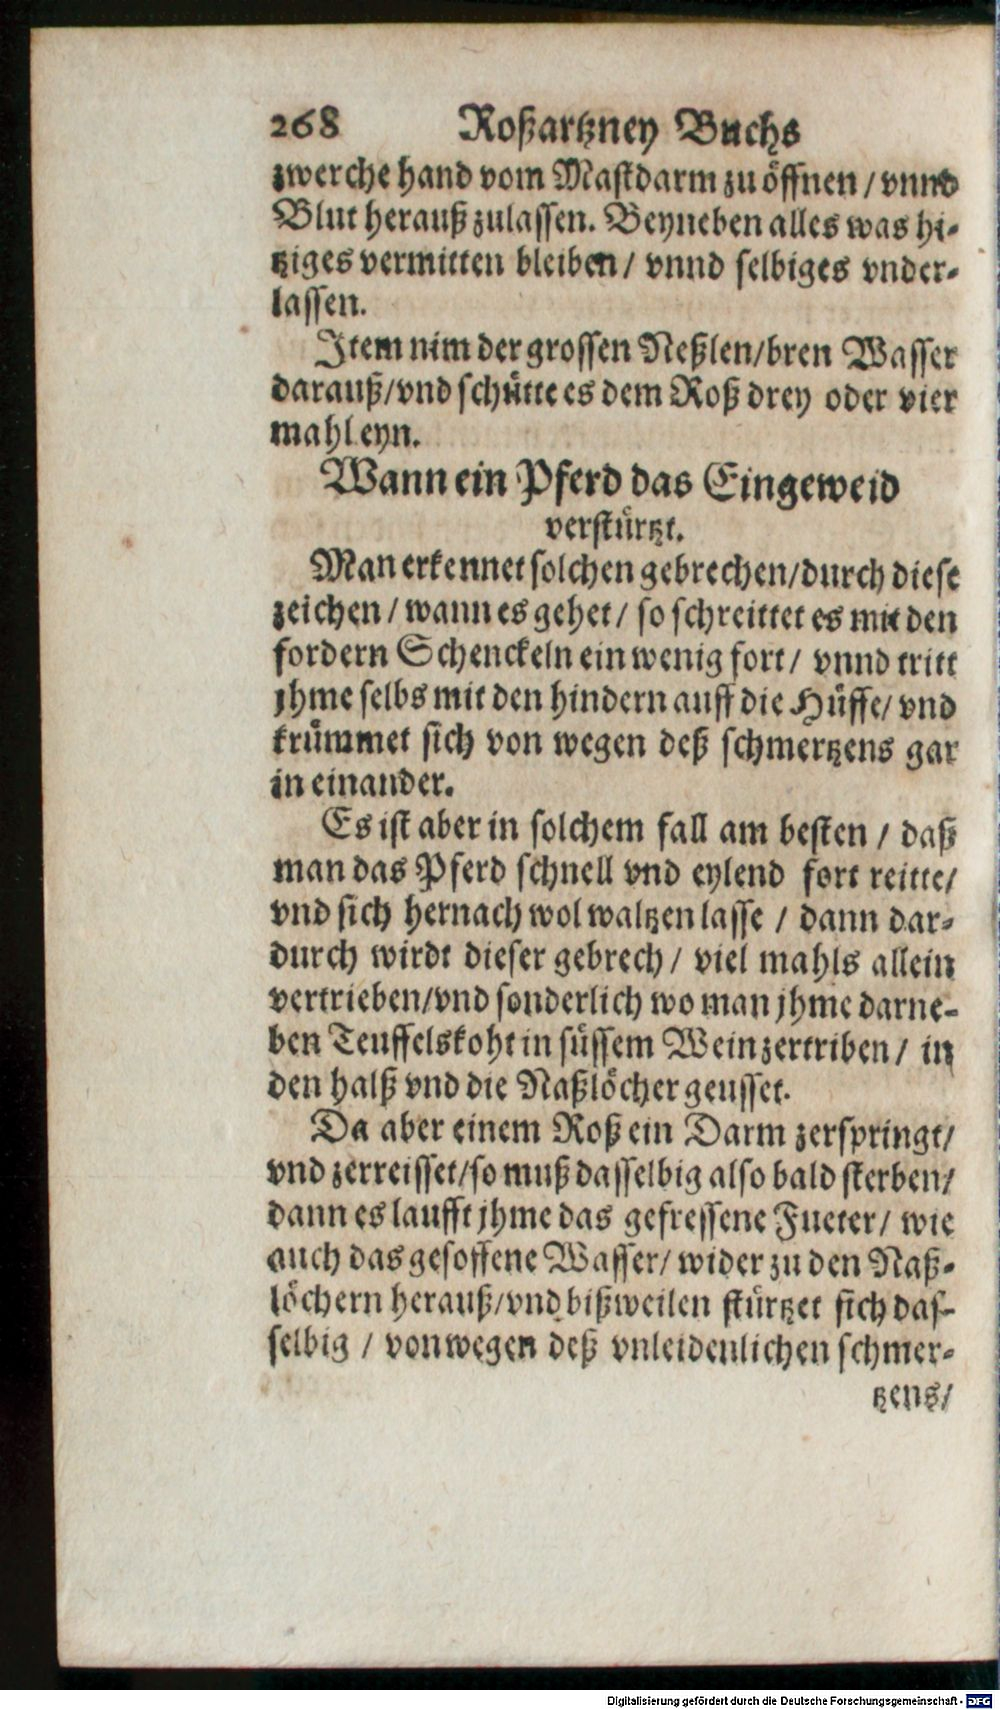 268 Roßartzney Buchs
zwerche hand vom Mastdarm zu öffnen / vnnd
Blut herauß zulassen. Beyneben alles was hi-
tziges vermitten bleiben / vnnd selbiges vnder-
lassen.
Item nim der grossen Neßlen/bren Wasser
darauß/vnd schütte es dem Roß drey oder vier
mahl eyn.
Wann ein Pferd das Eingeweid
verstürtzt.
Man erkennet solchen gebrechen/durch diese
zeichen / wann es gehet / so schreittet es mit den
fordern Schenckeln ein wenig fort / vnnd tritt
jhme selbs mit den hindern auff die Hüffe/ vnd
krümmet sich von wegen deß schmertzens gar
in einander.
Es ist aber in solchem fall am besten / daß
man das Pferd schnell vnd eylend fort reitte/
vnd sich hernach wol waltzen lasse / dann dar-
durch wirdt dieser gebrech / viel mahls allein
vertrieben/vnd sonderlich wo man jhme darne-
ben Teuffelskoht in süssem Wein zertriben / in
den halß vnd die Naßlöcher geusset.
Da aber einem Roß ein Darm zerspringt/
vnd zerreisset/so muß dasselbig also bald sterben/
dann es laufft jhme das gefressene Fueter/ wie
auch das gesoffene Wasser/ wider zu den Naß-
löchern herauß/vnd bißweilen stürtzet sich das-
selbig / von wegen deß vnleidenlichen schmer-
tzens/
Digitalisierung gefördert durch die Deutsche Forschungsgemeinschaft - DFG